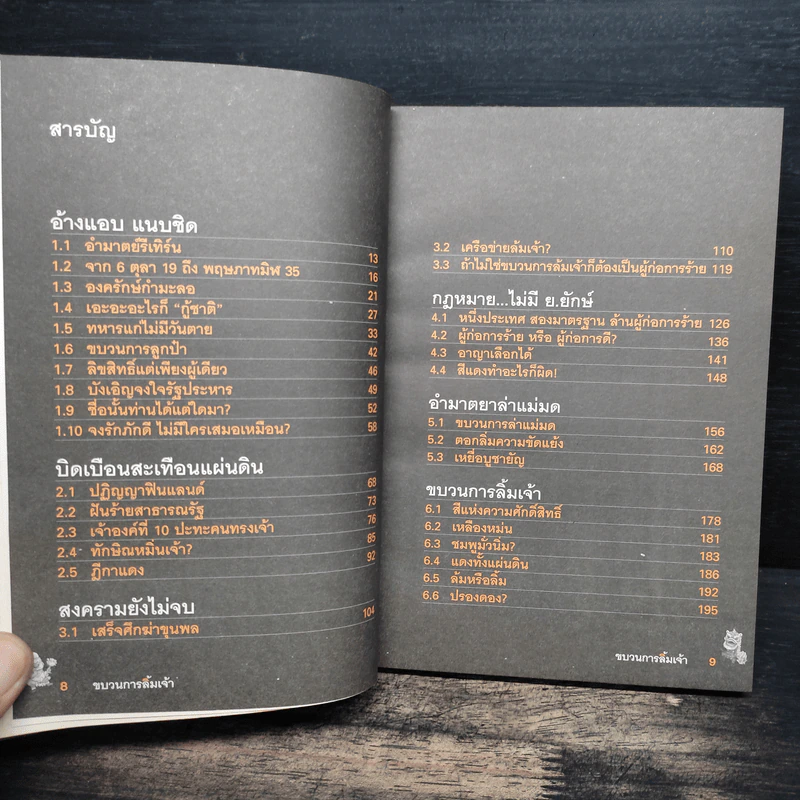 สารบัญ
อ้างแอบ แนบชิด
1.1 อำมาตย์รีเทิร์น 13
1.2 จาก 6 ตุลา 19 ถึง พฤษภาทมิฬ 35 16
1.3 องครักษ์กำมะลอ 21
1.4 เอะอะอะไรก็ “กู้ชาติ” 27
1.5 ทหารแก่ไม่มีวันตาย 33
1.6 ขบวนการลูกป๋า 42
1.7 ลิขสิทธิ์แต่เพียงผู้เดียว 46
1.8 บังเอิญจงใจรัฐประหาร 49
1.9 ชื่อนั้นท่านได้แต่ใดมา? 52
1.10 จงรักภักดี ไม่มีใครเสมอเหมือน? 58
บิดเบือนสะเทือนแผ่นดิน
2.1 ปฏิญญาฟินแลนด์ 68
2.2 ฝันร้ายสาธารณรัฐ 73
2.3 เจ้าองค์ที่ 10 ปะทะคนทรงเจ้า 76
2.4 ทักษิณหมิ่นเจ้า? 85
2.5 ฎีกาแดง 92
สงครามยังไม่จบ
3.1 เสร็จศึกฆ่าขุนพล 104
8 ขบวนการลิ้มเจ้า
3.2 เครือข่ายล้มเจ้า? 110
3.3 ถ้าไม่ใช่ขบวนการล้มเจ้าก็ต้องเป็นผู้ก่อการร้าย 119
กฎหมาย...ไม่มี ย.ยักษ์
4.1 หนึ่งประเทศ สองมาตรฐาน ล้านผู้ก่อการร้าย 126
4.2 ผู้ก่อการร้าย หรือ ผู้ก่อการดี? 136
4.3 อาญาเลือกได้ 141
4.4 สีแดงทำอะไรก็ผิด! 148
อำมาตยาล่าแม่มด
5.1 ขบวนการล่าแม่มด 156
5.2 ตอกลิ่มความขัดแย้ง 162
5.3 เหยื่อบูชายัญ 168
ขบวนการลิ้มเจ้า
6.1 สีแห่งความศักดิ์สิทธิ์ 178
6.2 เหลืองหม่น 181
6.3 ชมพูมั่วนิ่ม? 183
6.4 แดงทั้งแผ่นดิน 186
6.5 ล้มหรือลิ้ม 192
6.6 ปรองดอง? 195
ขบวนการลิ้มเจ้า 9